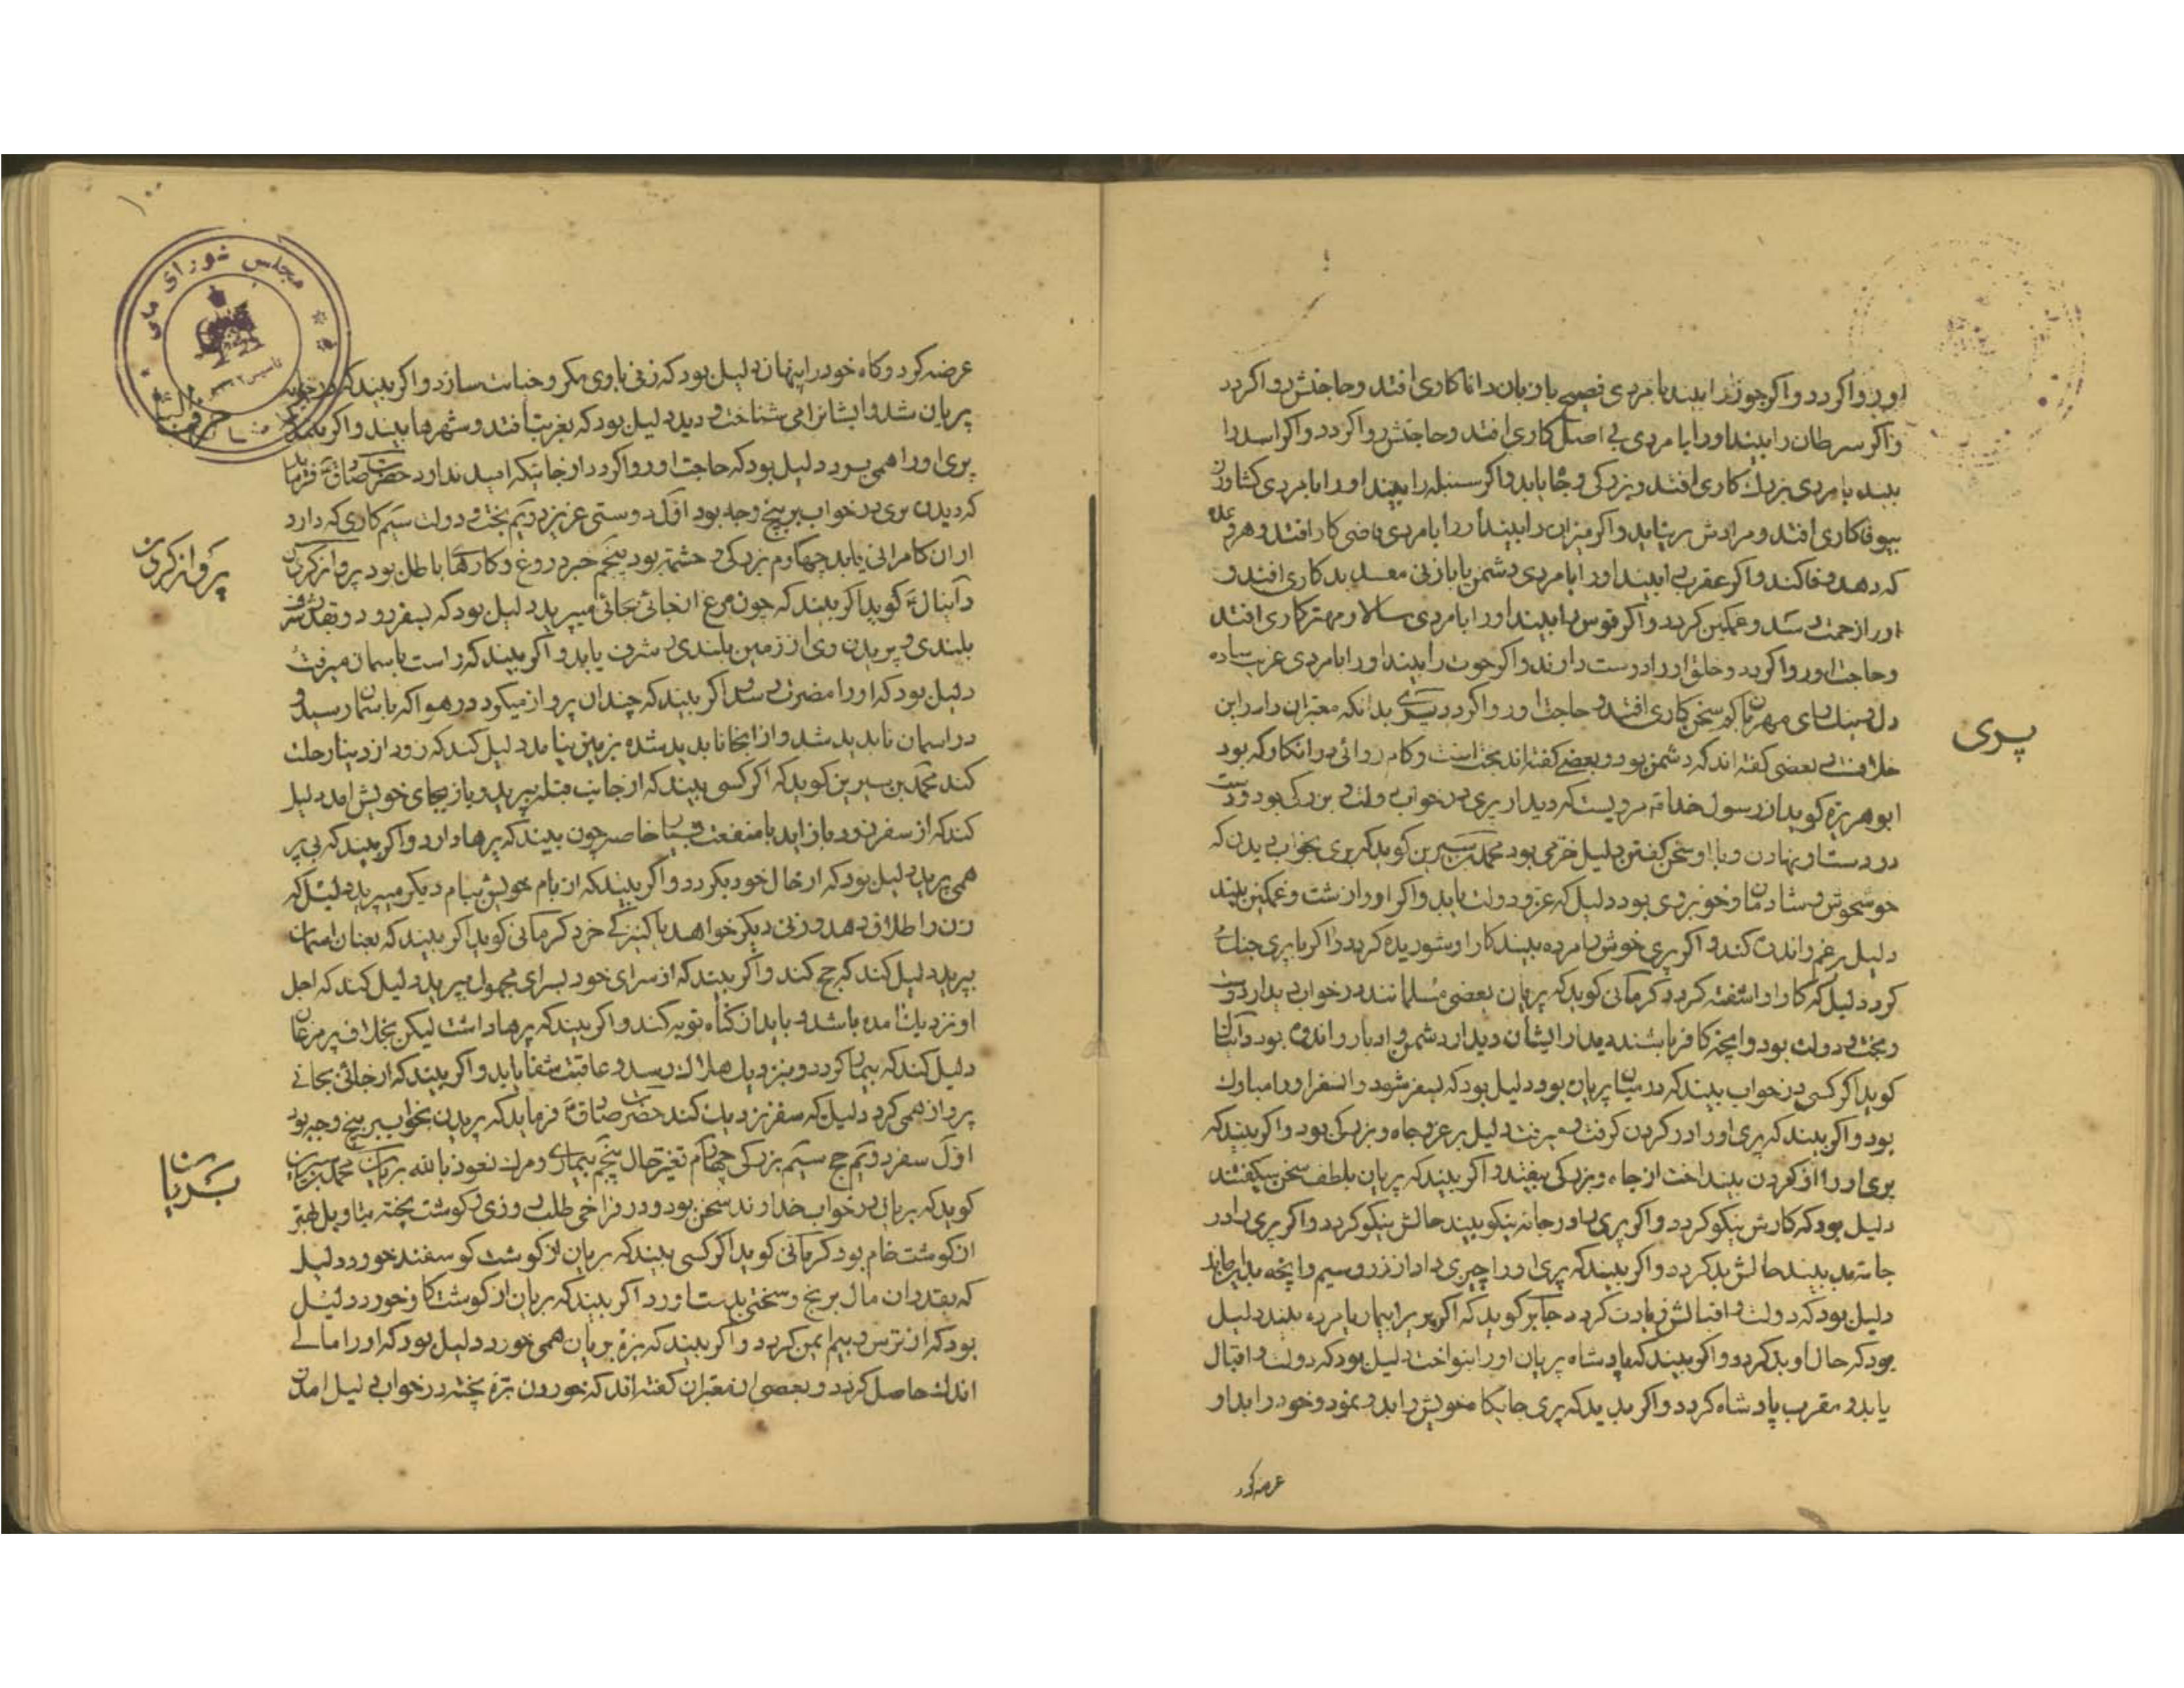 او روا کردد واکر جوزا را بیند با مردی فصیح با زبان دانا کاری افتد و حاجتش روا کردد
واکر سرطان را بیند او را با مردی بی اصل کاری افتد و حاجتش روا کردد واکر اسد را
بیند با مردی بزرك کاری افتد و بزرکی و جاه یابد واکر سنبله را بیند او را با مردی کشاورز
بیوفا کاری افتد و مرادش بر نیاید واکر میزان را بیند او را با مردی قاضی کار افتد و هر وعده
که دهد وفا کند واکر عقرب را بیند او را با مردی دشمن یا با زنی مفسد بدکاری افتد و
او را زحمت رسد و غمکین کردد واکر قوس را بیند او را با مردی سالار و مهتر کاری افتد
و حاجت او روا کردد و خلق او را دوست دارند واکر حوت را بیند او را با مردی غریب ساده
دل و نیك رای مهربان کم سخن کاری افتد و حاجت او روا کردد پری بدانکه معبران را در این
خلافست بعضی کفته اند که دشمن بود و بعضی کفته اند بخت است و کام روائی در انکار که بود
ابو هریره کوید از رسول خدا مرویست که دیدار پری در خواب دولت و بزرکی بود و دست
در دست او نهادن و با او سخن کفتن دلیل خرمی بود محمد بن سیرین کوید که پری بخواب دیدن که
خوش و شادمان و خوبروی بود دلیل که عز و دولت یابد واکر او را زشت و غمکین بیند
دلیل بر غم و اندوه کند واکر پری خوش را مرده بیند کار او شوریده کردد واکر با پری جنك
کرد دلیل که کار او اشفته کردد کرمانی کوید که پریان بعضی مسلمانند در خواب دیدار دوست
و بخت و دولت بود و انچه کافر باشند دیدار ایشان دیدار دشمن و ادبار و اندوه بود دانیال
کوید اکر کسی در خواب بیند که در میان پریان بود دلیل بود که بسفر شود و انسفر او را مبارك
بود واکر بیند که پری او را در کردن کرفت و میرفت دلیل بر عز و جاه و بزرکی بود واکر بیند که
پری او را از کردن بینداخت از جاه و بزرکی بیفتد واکر بیند که پریان بلطف سخن میکفتند
دلیل بود که کارش نیکو کردد واکر پری را در جامه نیکو بیند حالش نیکو کردد واکر پری را در
جامه بد بیند حالش بد کردد واکر بیند که پری او را چیزی داد از زر و سیم و انچه بدین ماند
دلیل بود که دولت و اقبالش زیادت کردد جابر کوید که اکر پری را بیمار یا مرده بیند دلیل
بود که حال او بد کردد واکر بیند که پادشاه پریان او را بنواخت دلیل بود که دولت و اقبال
یابد و مقرب پادشاه کردد واکر بیند که پری جایکاه خویش را بدو نمود و خود را بدو
عرضه کرد
پری
۱۰۰
مجلس شورای ملی
عرضه کرد و کاه خود را پنهان دلیل بود که زنی با وی مکر و خیانت سازد واکر بیند که در خانه
پریان شد و ایشانرا می شناخت و دید دلیل بود که بغربت افتد و شهرها بیند واکر بیند که
پری او را همی برد دلیل بود که حاجت او روا کردد از جائیکه امید ندارد حضرت صادق ع فرماید
که دیدن پری در خواب بر پنج وجه بود اول دوستی عزیز دویم بخت و دولت سیم کاری که دارد
از ان کامرانی یابد چهارم بزرکی و حشمت بود پنجم خبر دروغ و کارهای باطل بود پرواز کردن
دانیال ع کوید اکر بیند که چون مرغ از جائی بجائی میپرید دلیل بود که بسفر رود و بقدر
بلندی و پریدن وی از زمین بلندی و شرف یابد واکر بیند که راست باسمان میرفت
دلیل بود که او را مضرت رسد واکر بیند که چندان پرواز میکرد در هوا که باسمان رسید و
در اسمان ناپدید شد و از انجا ناپدید شده بزمین نیامد دلیل کند که زود از دنیا رحلت
کند محمد بن سیرین کوید که اکر کسی بیند که از جانب قبله بپرید و باز بجای خویش امد دلیل
کند که از سفر زود باز اید با منفعت بسیار خاصه چون بیند که پرها دارد واکر بیند که بی پر
همی پرید دلیل بود که از حال خود بکردد واکر بیند که از بام خویش ببام دیکر میپرید دلیل که
زن را طلاق دهد و زنی دیکر خواهد یا کنیزکی خرد کرمانی کوید اکر بیند که بعنان اسمان
بپرید دلیل کند که حج کند واکر بیند که از سرای خود بسرای مجهول میپرید دلیل کند که اجل
او نزدیك امده باشد و باید از کناه توبه کند واکر بیند که پرها داشت لیکن بخلاف پر مرغان
دلیل کند که بیمار کردد و بنزدیك هلاك رسد و عاقبت شفا یابد واکر بیند که از جائی بجائی
پرواز همی کرد دلیل که سفر نزدیك کند حضرت صادق ع فرماید که پریدن بخواب بر پنج وجه بود
اول سفر دویم حج سیم بزرکی چهارم تغیر حال پنجم بیماری و مرك نعوذ بالله بریان محمد بن سیرین
کوید که بریانی در خواب خداوند سخن بود و در فراخی طلب روزی و کوشت پخته بتاویل بهتر
از کوشت خام بود کرمانی کوید اکر کسی بیند که بریان از کوشت کوسفند خورد دلیل
که بقدر ان مال برنج و سختی بدست اورد اکر بیند که بریان از کوشت کاو خورد دلیل
بود که از ترس و بیم ایمن کردد واکر بیند که بزه بریان همی خورد دلیل بود که او را مالی
اندك حاصل کردد و بعضی از معبران کفته اند که خوردن بزه پخته در خواب دلیل امدن
پرواز کردن
بریان